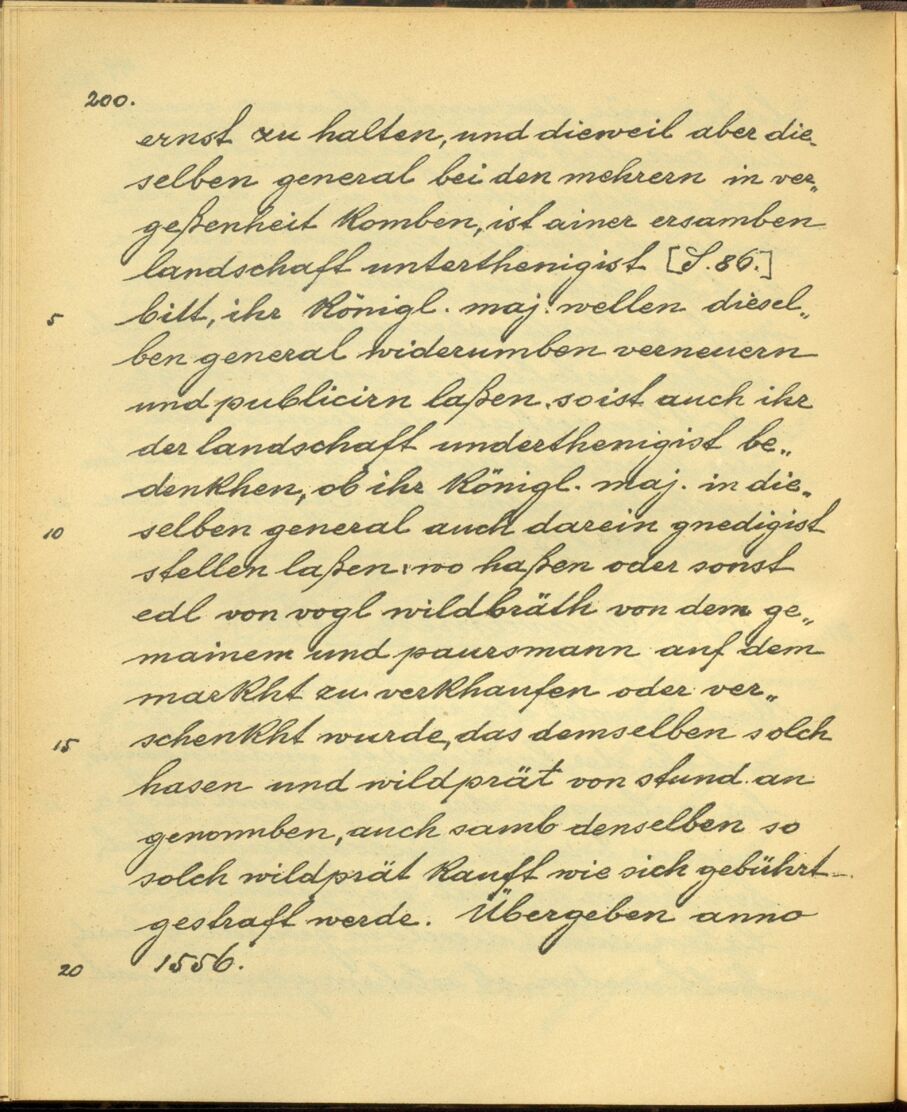 200.
ernst zu halten, und dieweil aber die„
selben general bei den mehrern in ver„
geßenheit komben, ist ainer ersamben
landschaft unterthenigist [S. 86.]
5 bitt, ihr königl. maj. wellen diesel„
ben general widerumben verneuern
und publicirn laßen. so ist auch ihr
der landschaft underthenigist be„
denkhen, ob ihr königl. maj. in die„
10 selben general auch darein gnedigist
stellen laßen: wo haßen oder sonst
edl von vogl wildbräth von dem ge„
mainem und paursmann auf dem
markht zu verkhaufen oder ver„
15 schenkht wurde, das demselben solch
hasen und wildprät von stund an
genommben, auch samb denselben so
solch wildprät kauft wie sich gebührt
gestraft werde. Übergeben anno
20 1556.